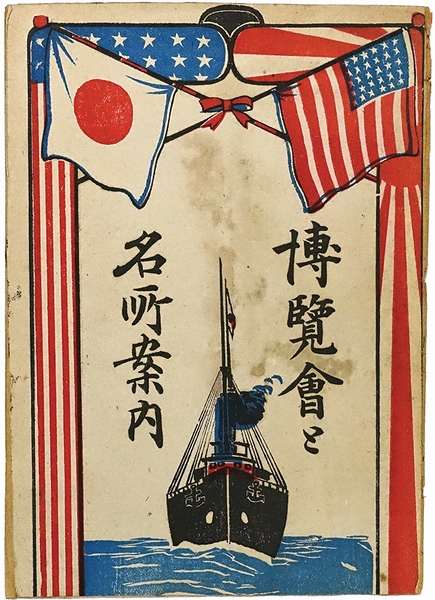 博覽會と
名所案内